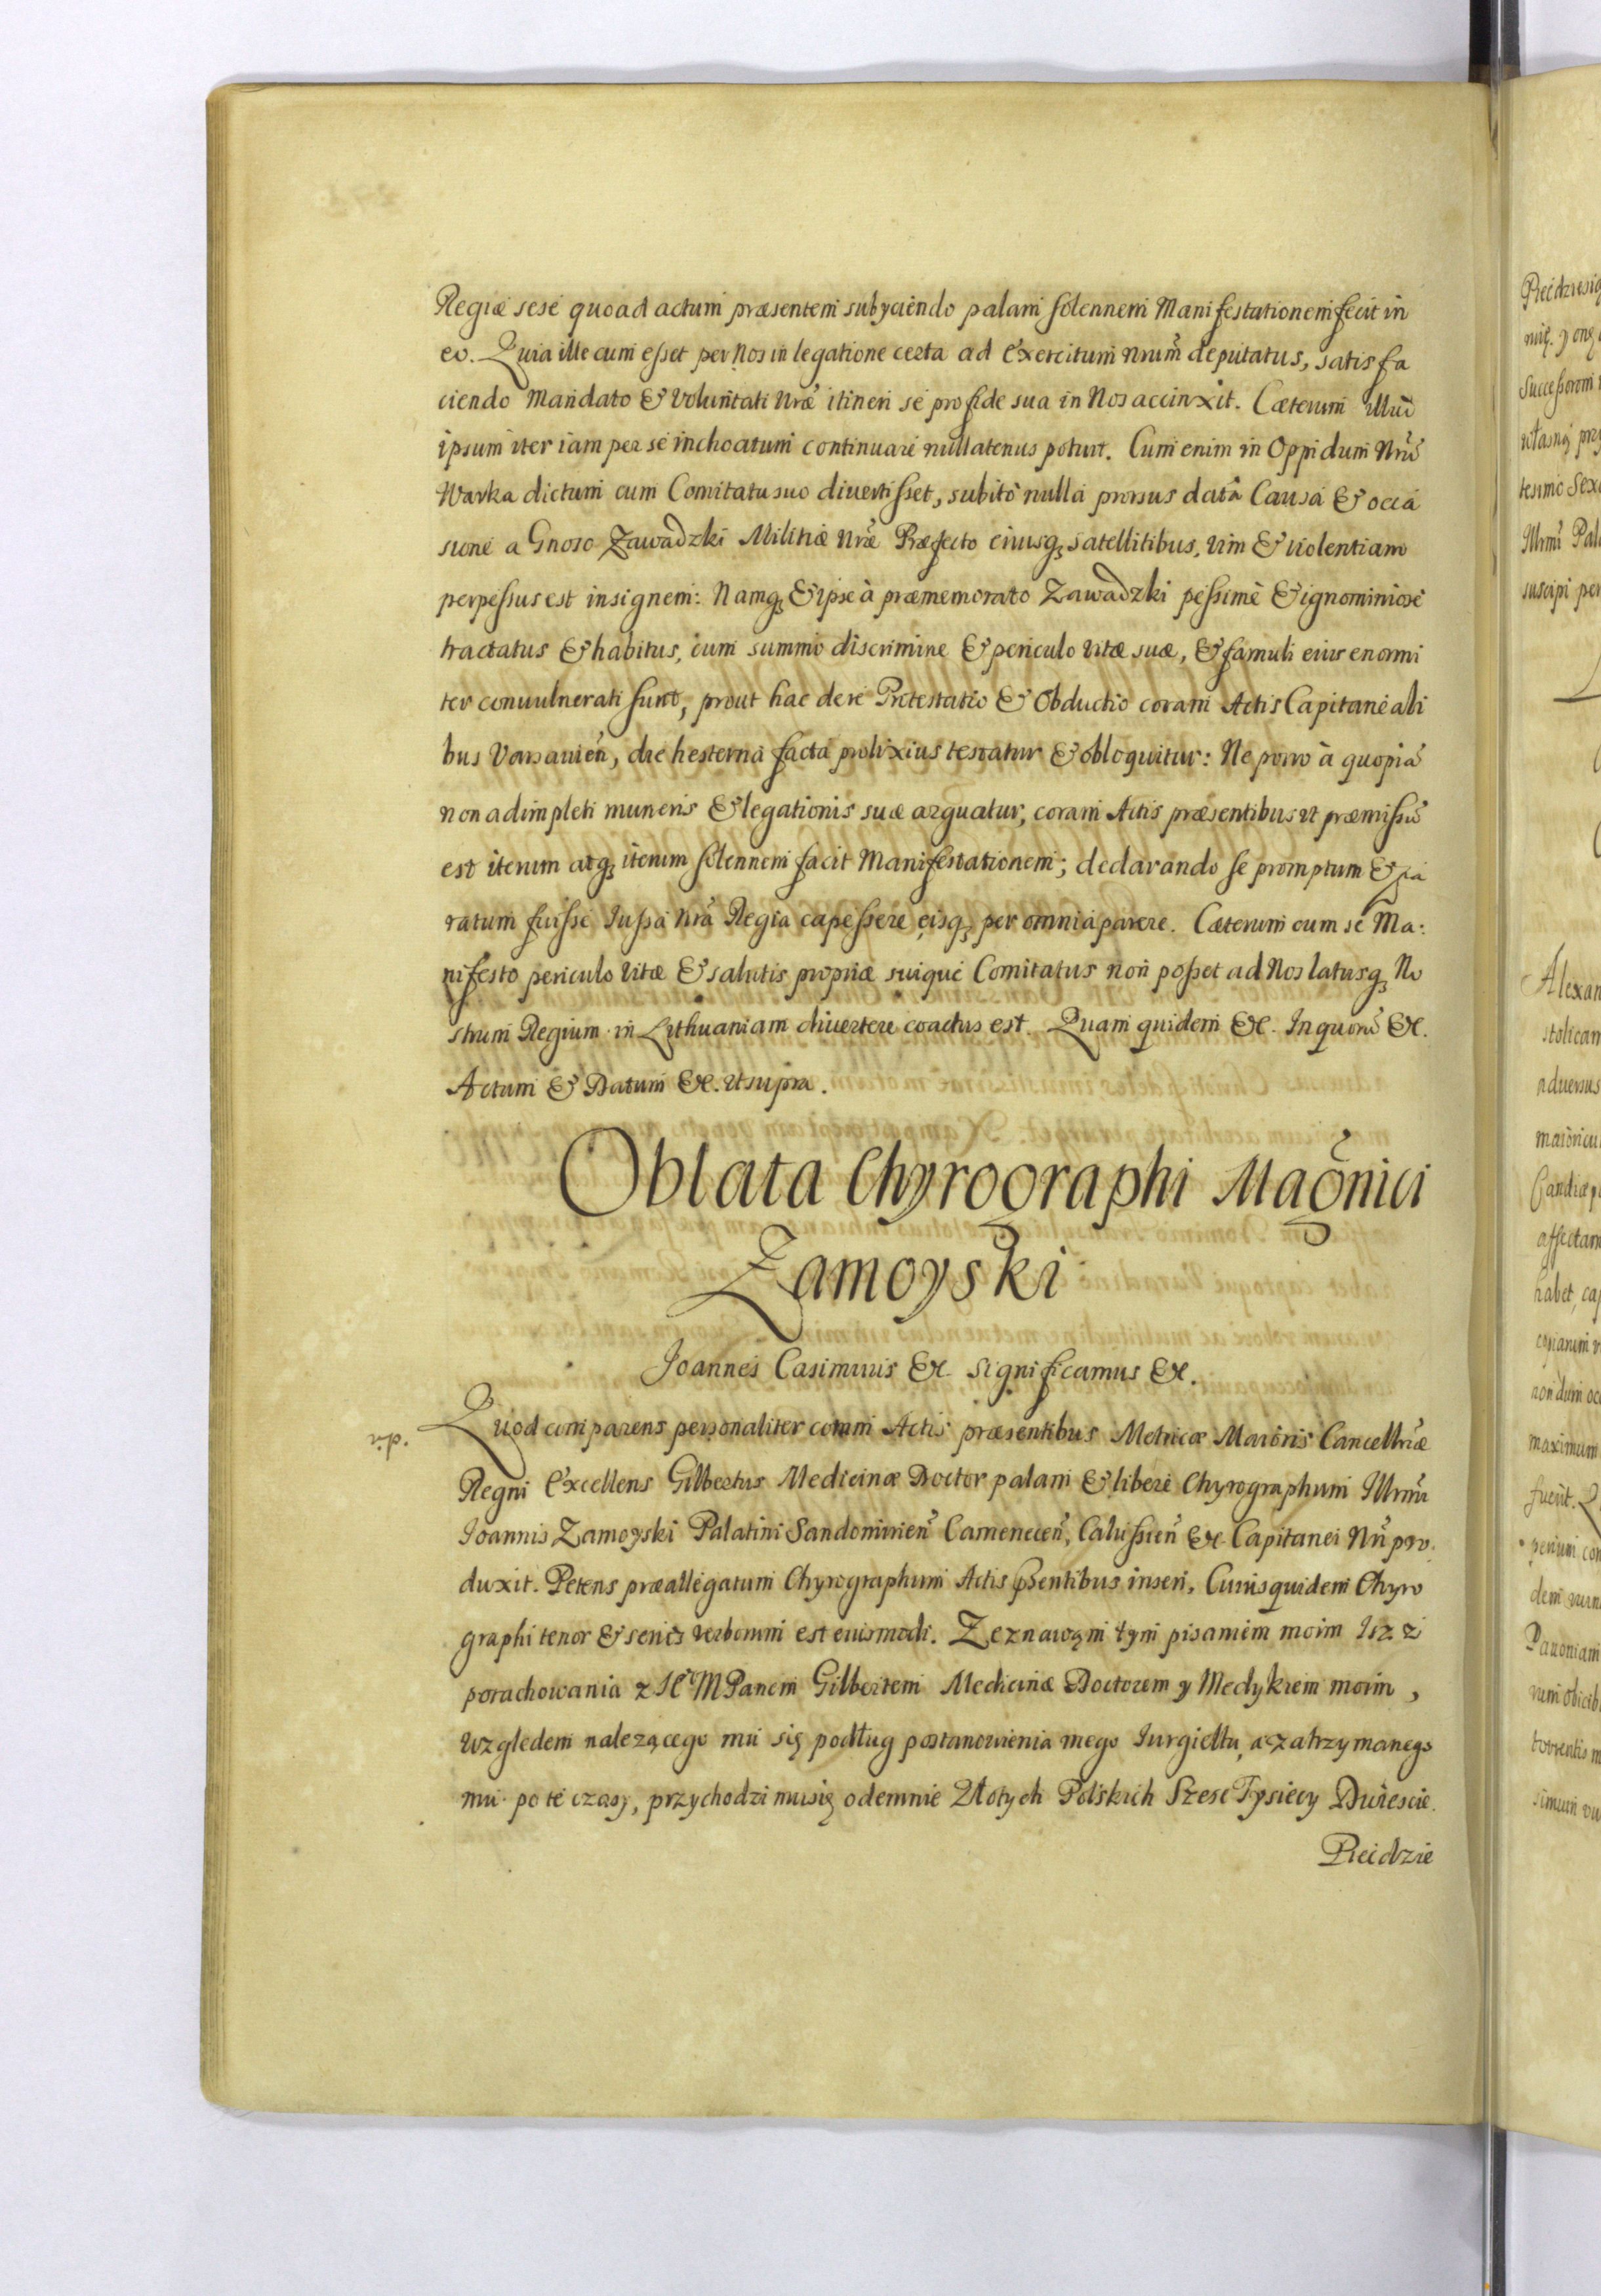 Regiæ sese quoad actum præsentem subyciendo palam solennem Manifestationem fecit in
eo. Quia ille cum esset per Nos in legatione certa ad Exercitum nrum̃ deputatus, satisfa
ciendo Mandato & Voluntati nræ̃ itineri se pro fide sua in Nos accinxit. Cæterum illud
ipsum iter iam per se inchoatum continuare nullatenus potuit. Cum enim in Oppidum Nrũ
Warka dictum cum Comitatu suo divertisset, subitò nulla prorsus datâ Causâ & occa
sione a Gnoso Zawadzki Militiæ Nræ̃ Præfecto eiusq; satellitibus, vim & violentiam
perpessus est insignem: Namq; & ipse à præmemorato Zawadzki pessimè & ignominiosè
tractatus & habitus, cum summo discrimine & periculo vitæ suæ, & famuli eius enormi
ter convulnerati sunt, prout hac de re Protestatio & Obductio coram Actis Capitaneali
bus Varsavien̄, die hesterna facta prolixius testatur & obloquitur: Ne porro à quopiã
non adimpleti muneris & legationis suæ arguatur, coram Actis præsentibus ut præmissũ
est iterum atq; iterum solennem facit Manifestationem; declarando se promptum & pa
ratum fuisse Jussa nrã Regia capessere eisq; per omnia parere. Cæterum cum se Ma:
nifesto periculo vitæ & salutis propriæ suique Comitatus non posset ad Nos latusq; No
strum Regium in Lithuaniam divertere coactus est. Quam quidem &c. In quorũ &c.
Actum & Datum &c. ut supra.
Oblata Chyrographi Magñici
Zamoyski
Joannes Casimirus &c. significamus &c.
Quod comparens personaliter coram Actis præsentibus Metricæ Maioris Cancellriæ
Regni Excellens Gilbertus Medicinæ Doctor palam & libere Chyrographum Illrmi
Joannis Zamoyski Palatini Sandomirien̄ Camenecen̄, Calussien̄ &c. Capitanei Nrĩ pro:
duxit. Petens præallegatum Chyrographum Actis psentibus inseri, Cuius quidem Chyro
graphi tenor & series verborum est eiusmodi. Zeznawąm tym pisaniem moim Isz z
porachowania z JEM Panem Gilbertem Medicinæ Doctorem y Medykiem moim,
względem nalezącego mu się podług postanowienia mego Iurgieltu, a zatrzymanego
mu po te czasy, przychodzi mu się odemnie Złotych Polskich Szesc Tysiecy Dwiescie.
Pieidzie